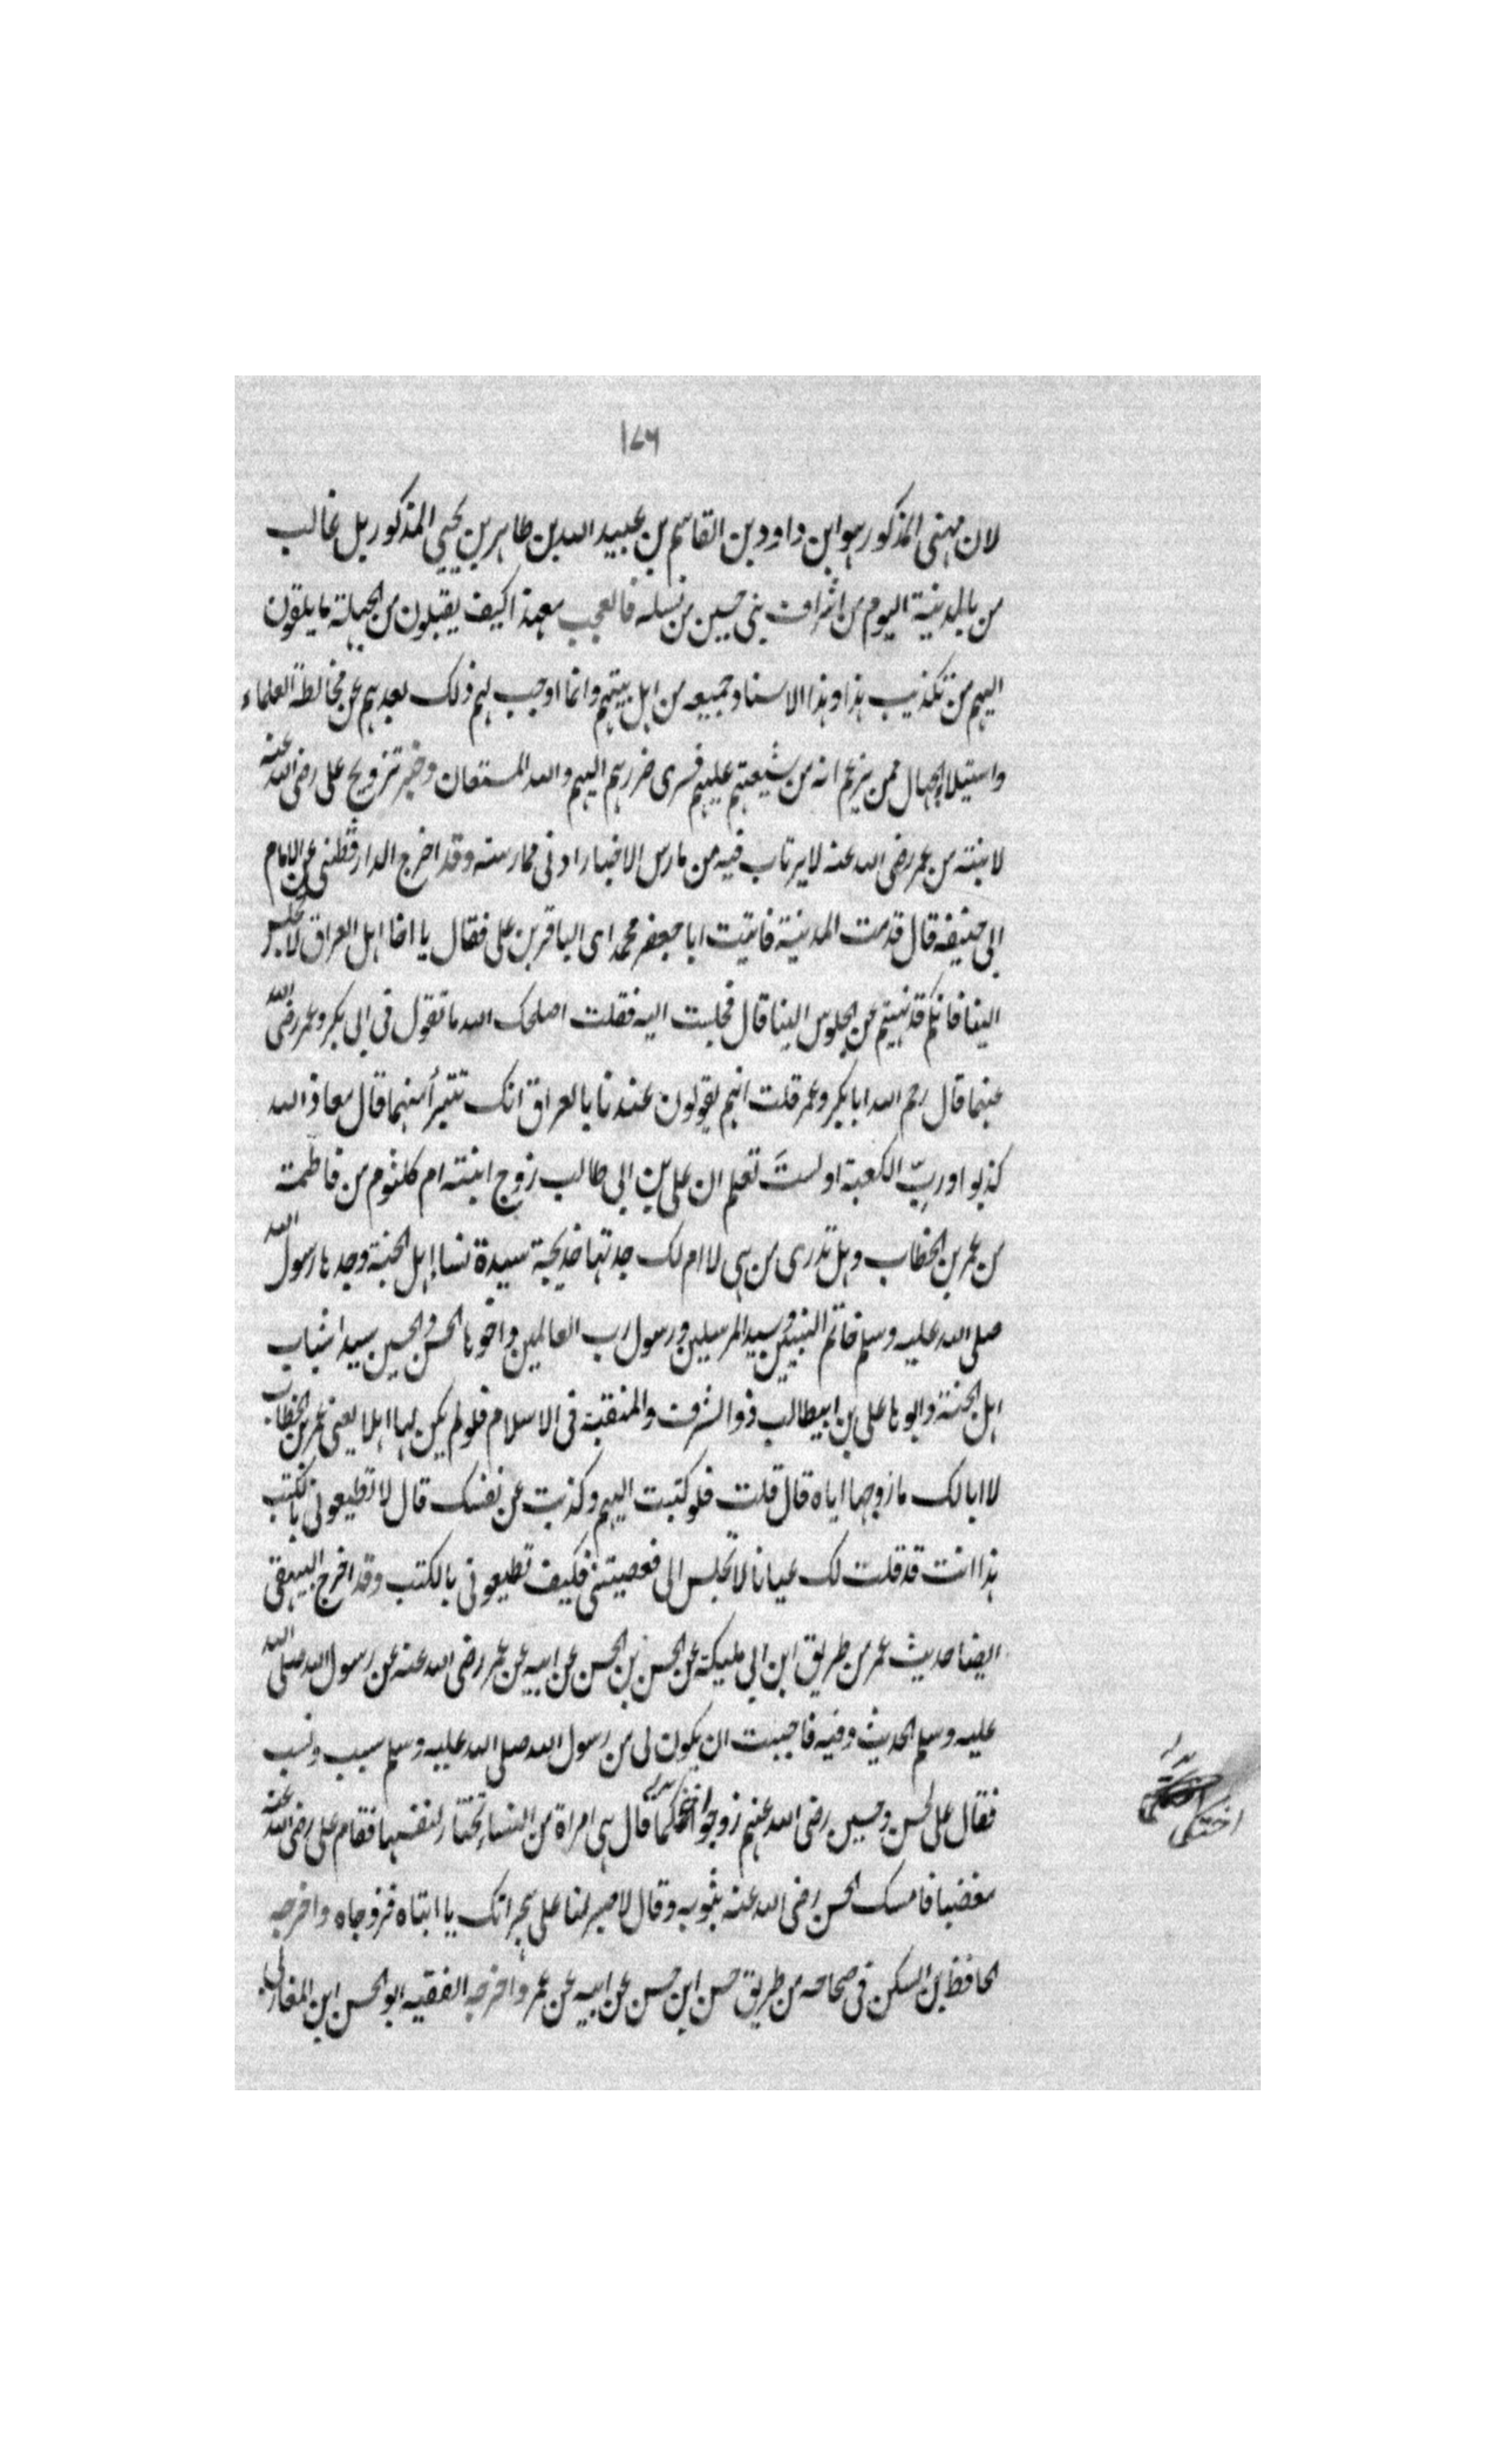 ١٧٦
لان مهنى المذكور هو ابن داود بن القاسم بن عبيد الله بن طاهر بن يحيى المذكور بل غالب
من بالمدينة اليوم من اشراف بني حسين من نسله فالعجب بعد هذا كيف يقبلون من الجهلة ما يلقون
اليهم من تكذيب هذا وهذا الاسناد جميعه من اهل بيتهم وانما اوجب لهم ذلك بعدهم عن مخالطة العلماء
واستيلاء الجهال ممن يزعم انه من شيعتهم عليهم فسرى ضررهم اليهم والله المستعان وخبر تزويج على رضى الله عنه
لابنته من عمر رضى الله عنه لا يرتاب فيه من مارس الاخبار ادنى ممارسته وقد اخرج الدارقطنى عن الامام
ابى حنيفه قال قدمت المدينة فاتيت ابا جعفر محمد اى الباقر بن على فقال يا اخا اهل العراق لا تجلس
الينا فانكم قد نهيتم عن الجلوس الينا قال فجلست اليه فقلت اصلحك الله ما تقول فى ابى بكر وعمر رضى الله
عنهما قال رحم الله ابا بكر وعمر قلت انهم يقولون عندنا بالعراق انك تتبرأ منهما قال معاذ الله
كذبوا وربّ الكعبة اولستَ تعلم ان على بن ابى طالب زوج ابنته ام كلثوم من فاطمة
من عمر بن الخطاب وهل تدرى من هى لا ام لك جدتها خديجة سيدة نساء اهل الجنة وجدها رسول الله
صلى الله عليه وسلم خاتم النبيين وسيد المرسلين ورسول رب العالمين واخوها الحسن والحسين سيدا شباب
اهل الجنة وابوها على بن ابيطالب ذو الشرف والمنقبة فى الاسلام فلو لم يكن لها اهلا يعنى عمر بن الخطاب
لا ابا لك ما زوجها اياه قال قلت فلو كتبت اليهم وكذبت عن نفسك قال لا تطيعونى بالكتب
هذا انت قد قلت لك عيانا لا تجلس الى فعصيتنى فكيف تطيعونى بالكتب وقد اخرج البيهقى
ايضا حديث عمر من طريق ابن ابى مليكة عن الحسن بن الحسن عن ابيه عن عمر رضى الله عنه عن رسول الله صلى الله
عليه وسلم الحديث وفيه فاحببت ان يكون لى من رسول الله صلى الله عليه وسلم سبب ونسب
فقال على لحسن وحسين رضى الله عنهم زوجوا قال هى امراة من النساء تختار لنفسها فقام على رضى الله عنه
مغضبا فامسك الحسن رضى الله عنه بثوبه وقال لا صبر لنا على هجرانك يا ابتاه فزوجاه واخرجه
الحافظ بن السكن فى صحاحه من طريق حسن ابن حسن عن ابيه عن عمر واخرجه الفقيه ابو الحسن ابن المغازلى